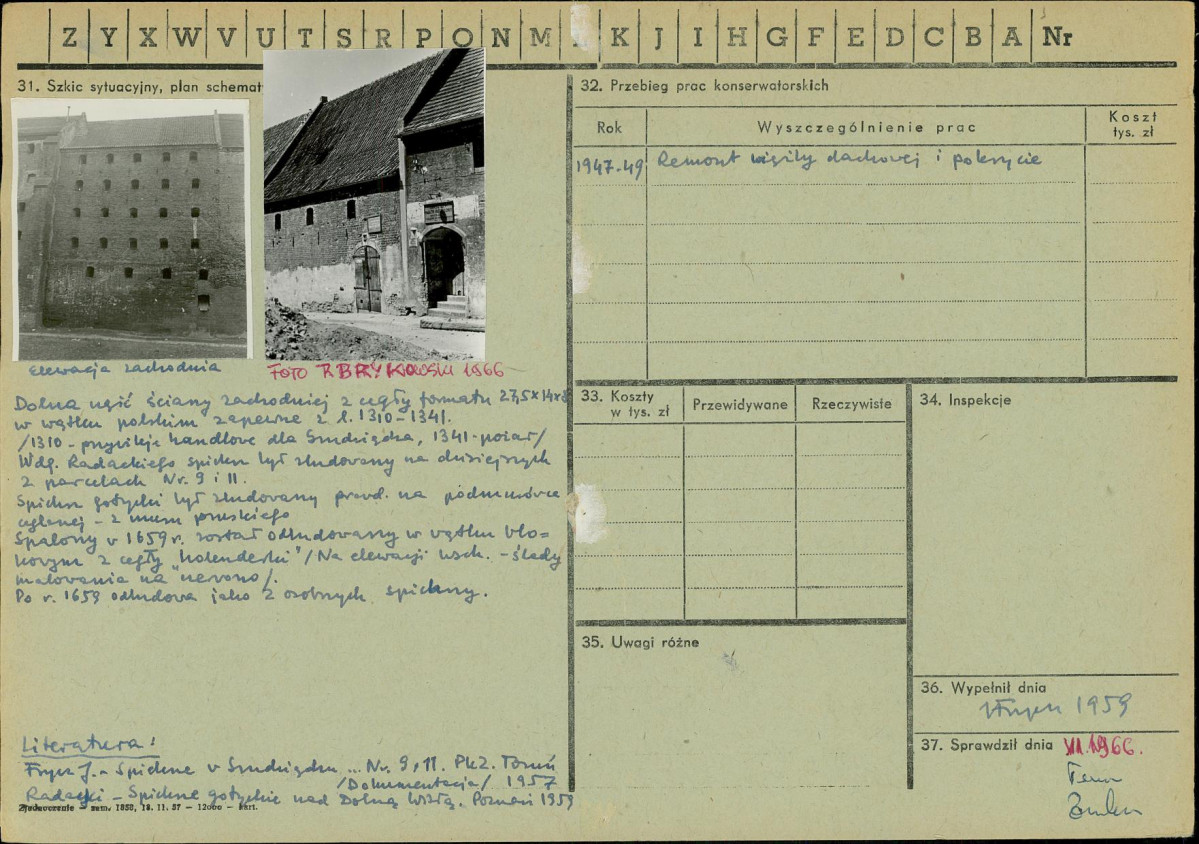 Z Y X W V U T S R P O N M K J I H G F E D C B A Nr
31. Szkic sytuacyjny, plan schemat
elewacja zachodnia
FOTO R BRYKOWSKI 1966
Dolna część ściany zachodniej z cegły formatu 27,5x14x8
w wątku polskim zapewne z l. 1310-1341.
/1310 - przywileje handlowe dla Grudziądza, 1341-pożar/
Wdg. Radackiego spichrz był zbudowany na dzisiejszych
2 parcelach Nr. 9 i 11.
Spichrz gotycki był zbudowany prawd. na podmurówce
ceglanej - z muru pruskiego
Spalony w 1659 r. został odbudowany w wątku blo-
kowym z cegły "holenderki" /Na elewacji wsch. - ślady
malowania na "
Po r. 1659 odbudowa jako 2 osobnych spichrzy.
Literatura:
Frycz J. - Spichrze w Grudziądzu ... Nr. 9, 11. PKZ. Toruń
/Dokumentacja/ 1957
Radacki - Spichrze gotyckie nad Dolną Wisłą. Poznań 1959
Zjednoczenie - zam. 1858, 18. 11. 57 - 12000 - kart.
32. Przebieg prac konserwatorskich
Rok Wyszczególnienie prac Koszt tys. zł
1947-49 Remont więźby dachowej i pokrycie
33. Koszty w tys. zł Przewidywane Rzeczywiste
34. Inspekcje
35. Uwagi różne
36. Wypełnił dnia
1959
37. Sprawdził dnia VII.1966.